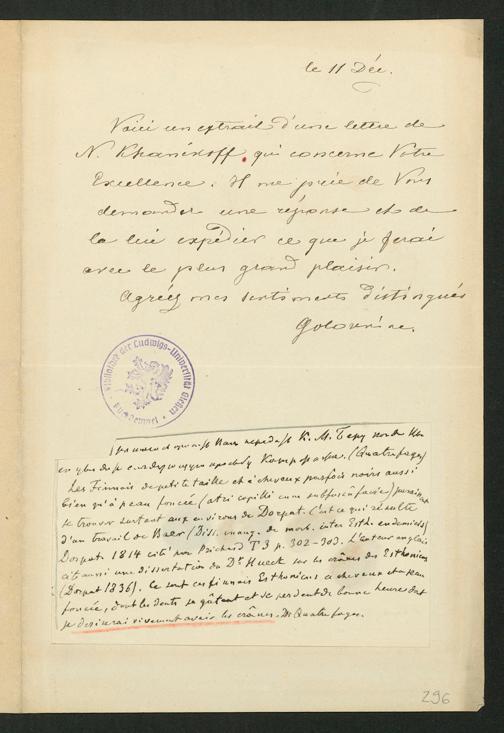 le 11 Déc.
Voici un extrait d'une lettre de
N. Khanikoff qui concerne Votre
Excellence. Il me prie de Vous
demander une réponse et de
la lui expédier ce que je ferai
avec le plus grand plaisir.
Agréez mes sentiments distingués
Golovnine.
Bibliothek der Ludwigs-Universität Giessen
К. М. Беру
(Quatrefages)
Les Finnois de petite taille et à cheveux parfois noirs aussi
bien qu'à peau foncée (atri capilli cum subfusca facie) paraissent
se trouver surtout aux environs de Dorpat. C'est ce qui résulte
d'un travail de Baer (Diss. inaug. de morb. inter Esth. endemicis)
Dorpat 1814 cité par Prichard T3 p. 302-303. L'auteur anglais
cite aussi une dissertation du Dr Hueck sur les crânes des Esthoniens
(Dorpat 1838). Ce sont ces finnois Esthoniens à cheveux et à peau
foncée, dont les dents se gâtent et se perdent de bonne heure dont
je désirerai vivement avoir les crânes. De Quatrefages.
296